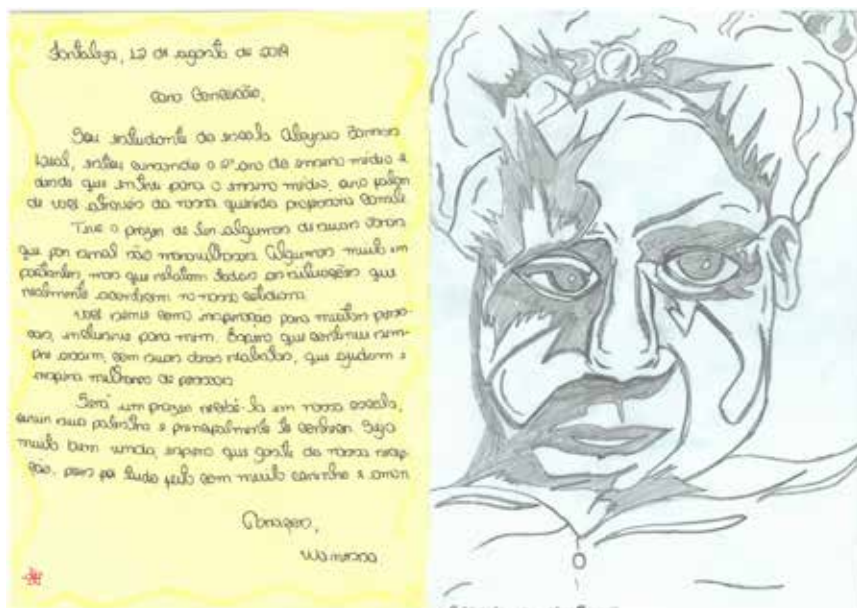 Fortaleza, 12 de agosto de 2019
Cara Conceição,
Sou estudante da escola Aloysio Barros
Leal, estou cursando o 2º ano do ensino médio e
desde que entrei para o ensino médio, ouço falar
de você através da nossa querida professora
Tive o prazer de ler algumas de suas obras
que por sinal são maravilhosas. Algumas muito im
portantes, mas que relatam todas as situações que
realmente acontecem no nosso cotidiano.
Você serve como inspiração para muitas pesso-
as, inclusive para mim. Espero que continue sem-
pre assim, com suas obras, que ajudam e
inspira milhares de pessoas
Será um prazer recebê-la em nossa escola,
ouvir sua palestra e principalmente te conhecer. Seja
muito bem vinda, espero que goste da nossa recep-
ção, pois foi tudo feito com muito carinho e amor
Abraços,